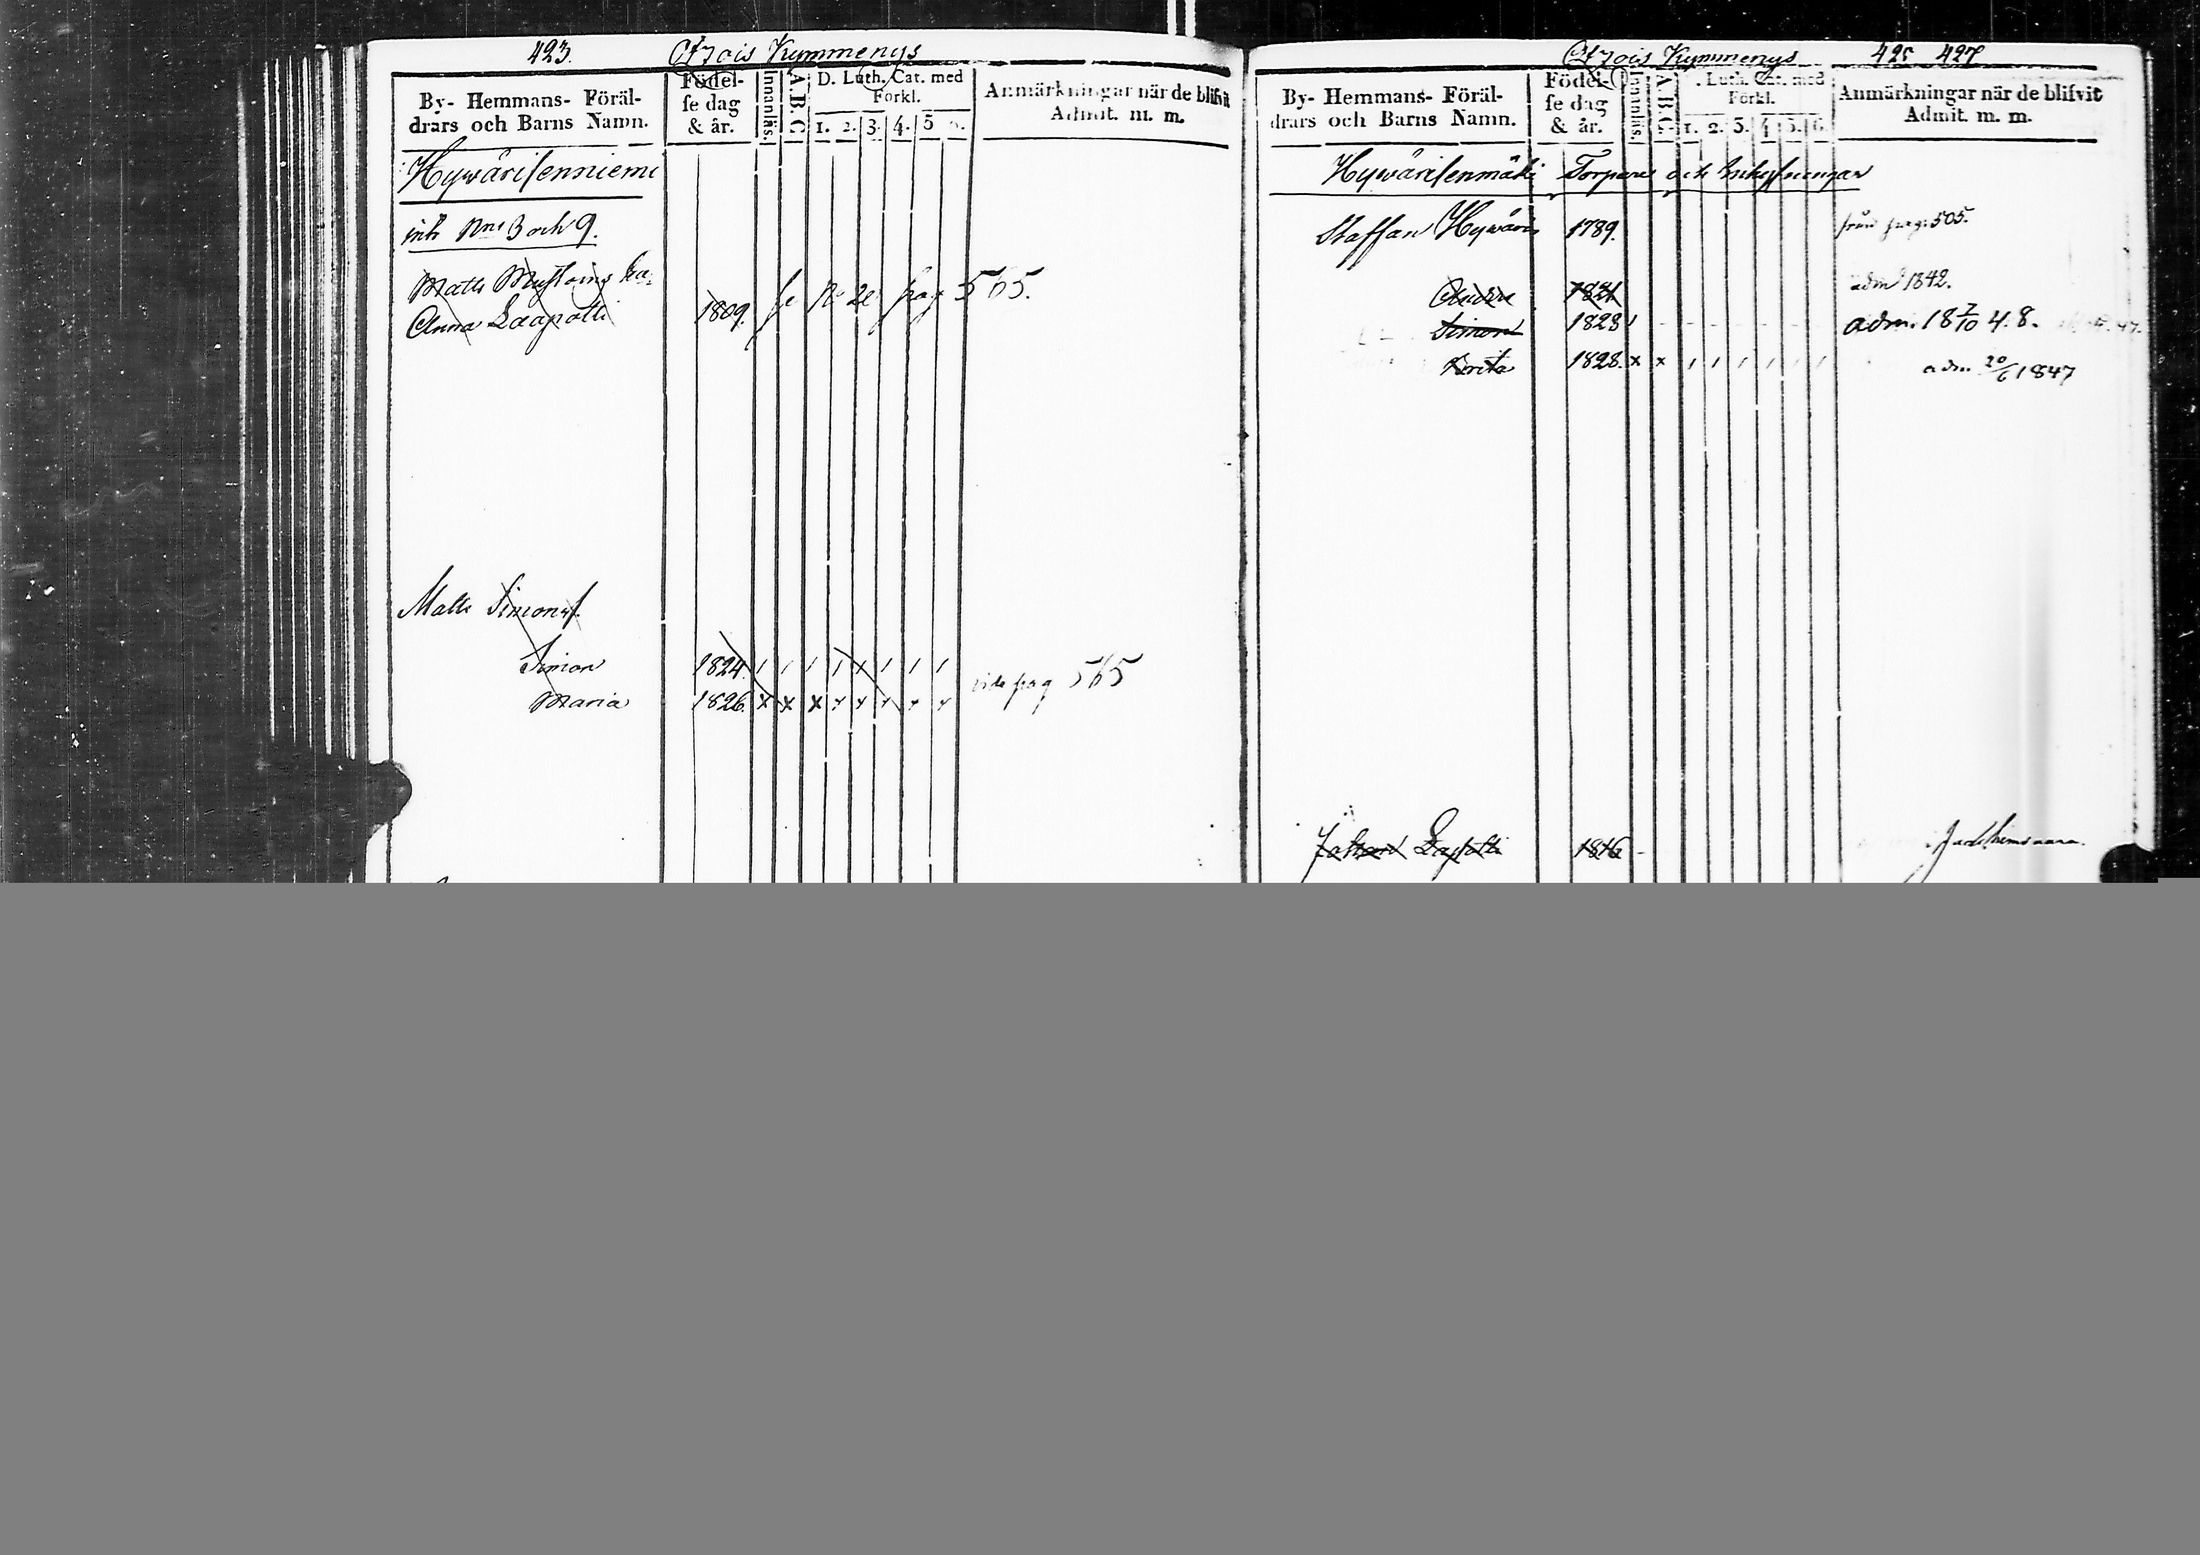 423. Otzois Kymmenys
By- Hemmans- Föräl-
drars och Barns Namn.
Födel-
ſe dag
& år.
Innanläs.
A. B. C
D. Luth. Cat. med
Förkl.
1. 2. 3. 4. 5 6.
Anmärkningar när de blifvit
Admit. m. m.
Hywäriſenniemi
9.
Matts
Anna Laapotti 1809. pag 565.
Matts Simonsſ.
Simon 1824.
Maria 1826. x x x x x x x x
vide pag 565
Otzois Kymmenys 425 427
By- Hemmans- Föräl-
drars och Barns Namn.
Födel-
ſe dag
& år.
Innanläs.
A. B. C.
. Luth. Cat. med
Förkl.
1. 2. 3. 4. 5. 6.
Anmärkningar när de blifvit
Admit. m. m.
Hywäriſenmäki Torpare och
Staffan Hywärin 1789. från pag. 505.
1821 adm 1842.
Simon 1828 adm. 18 7/10 48.
Brita 1828. x x adm 20/6 1847
Johan Lapotti 1816